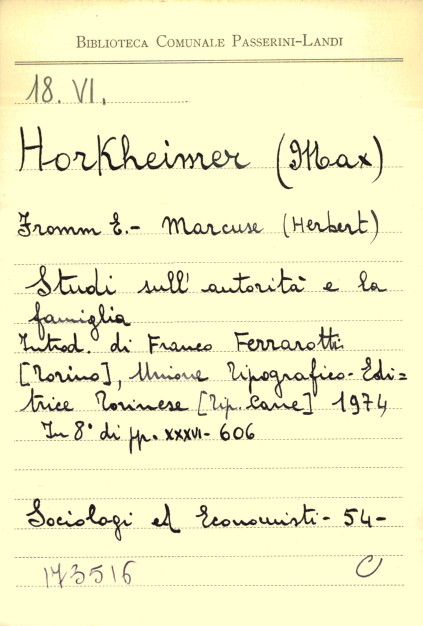 BIBLIOTECA COMUNALE PASSERINI-LANDI
18. VI.
Horkheimer (Max)
Fromm E.- Marcuse (Herbert)
Studi sull' autorità e la
famiglia
Introd. di Franco Ferrarotti.
[Torino], Unione Tipografico-Edi=
trice Torinese [Tip. Cane] 1974
In 8° di pp. XXXVI- 606
Sociologi ed Economisti - 54-
173516 C